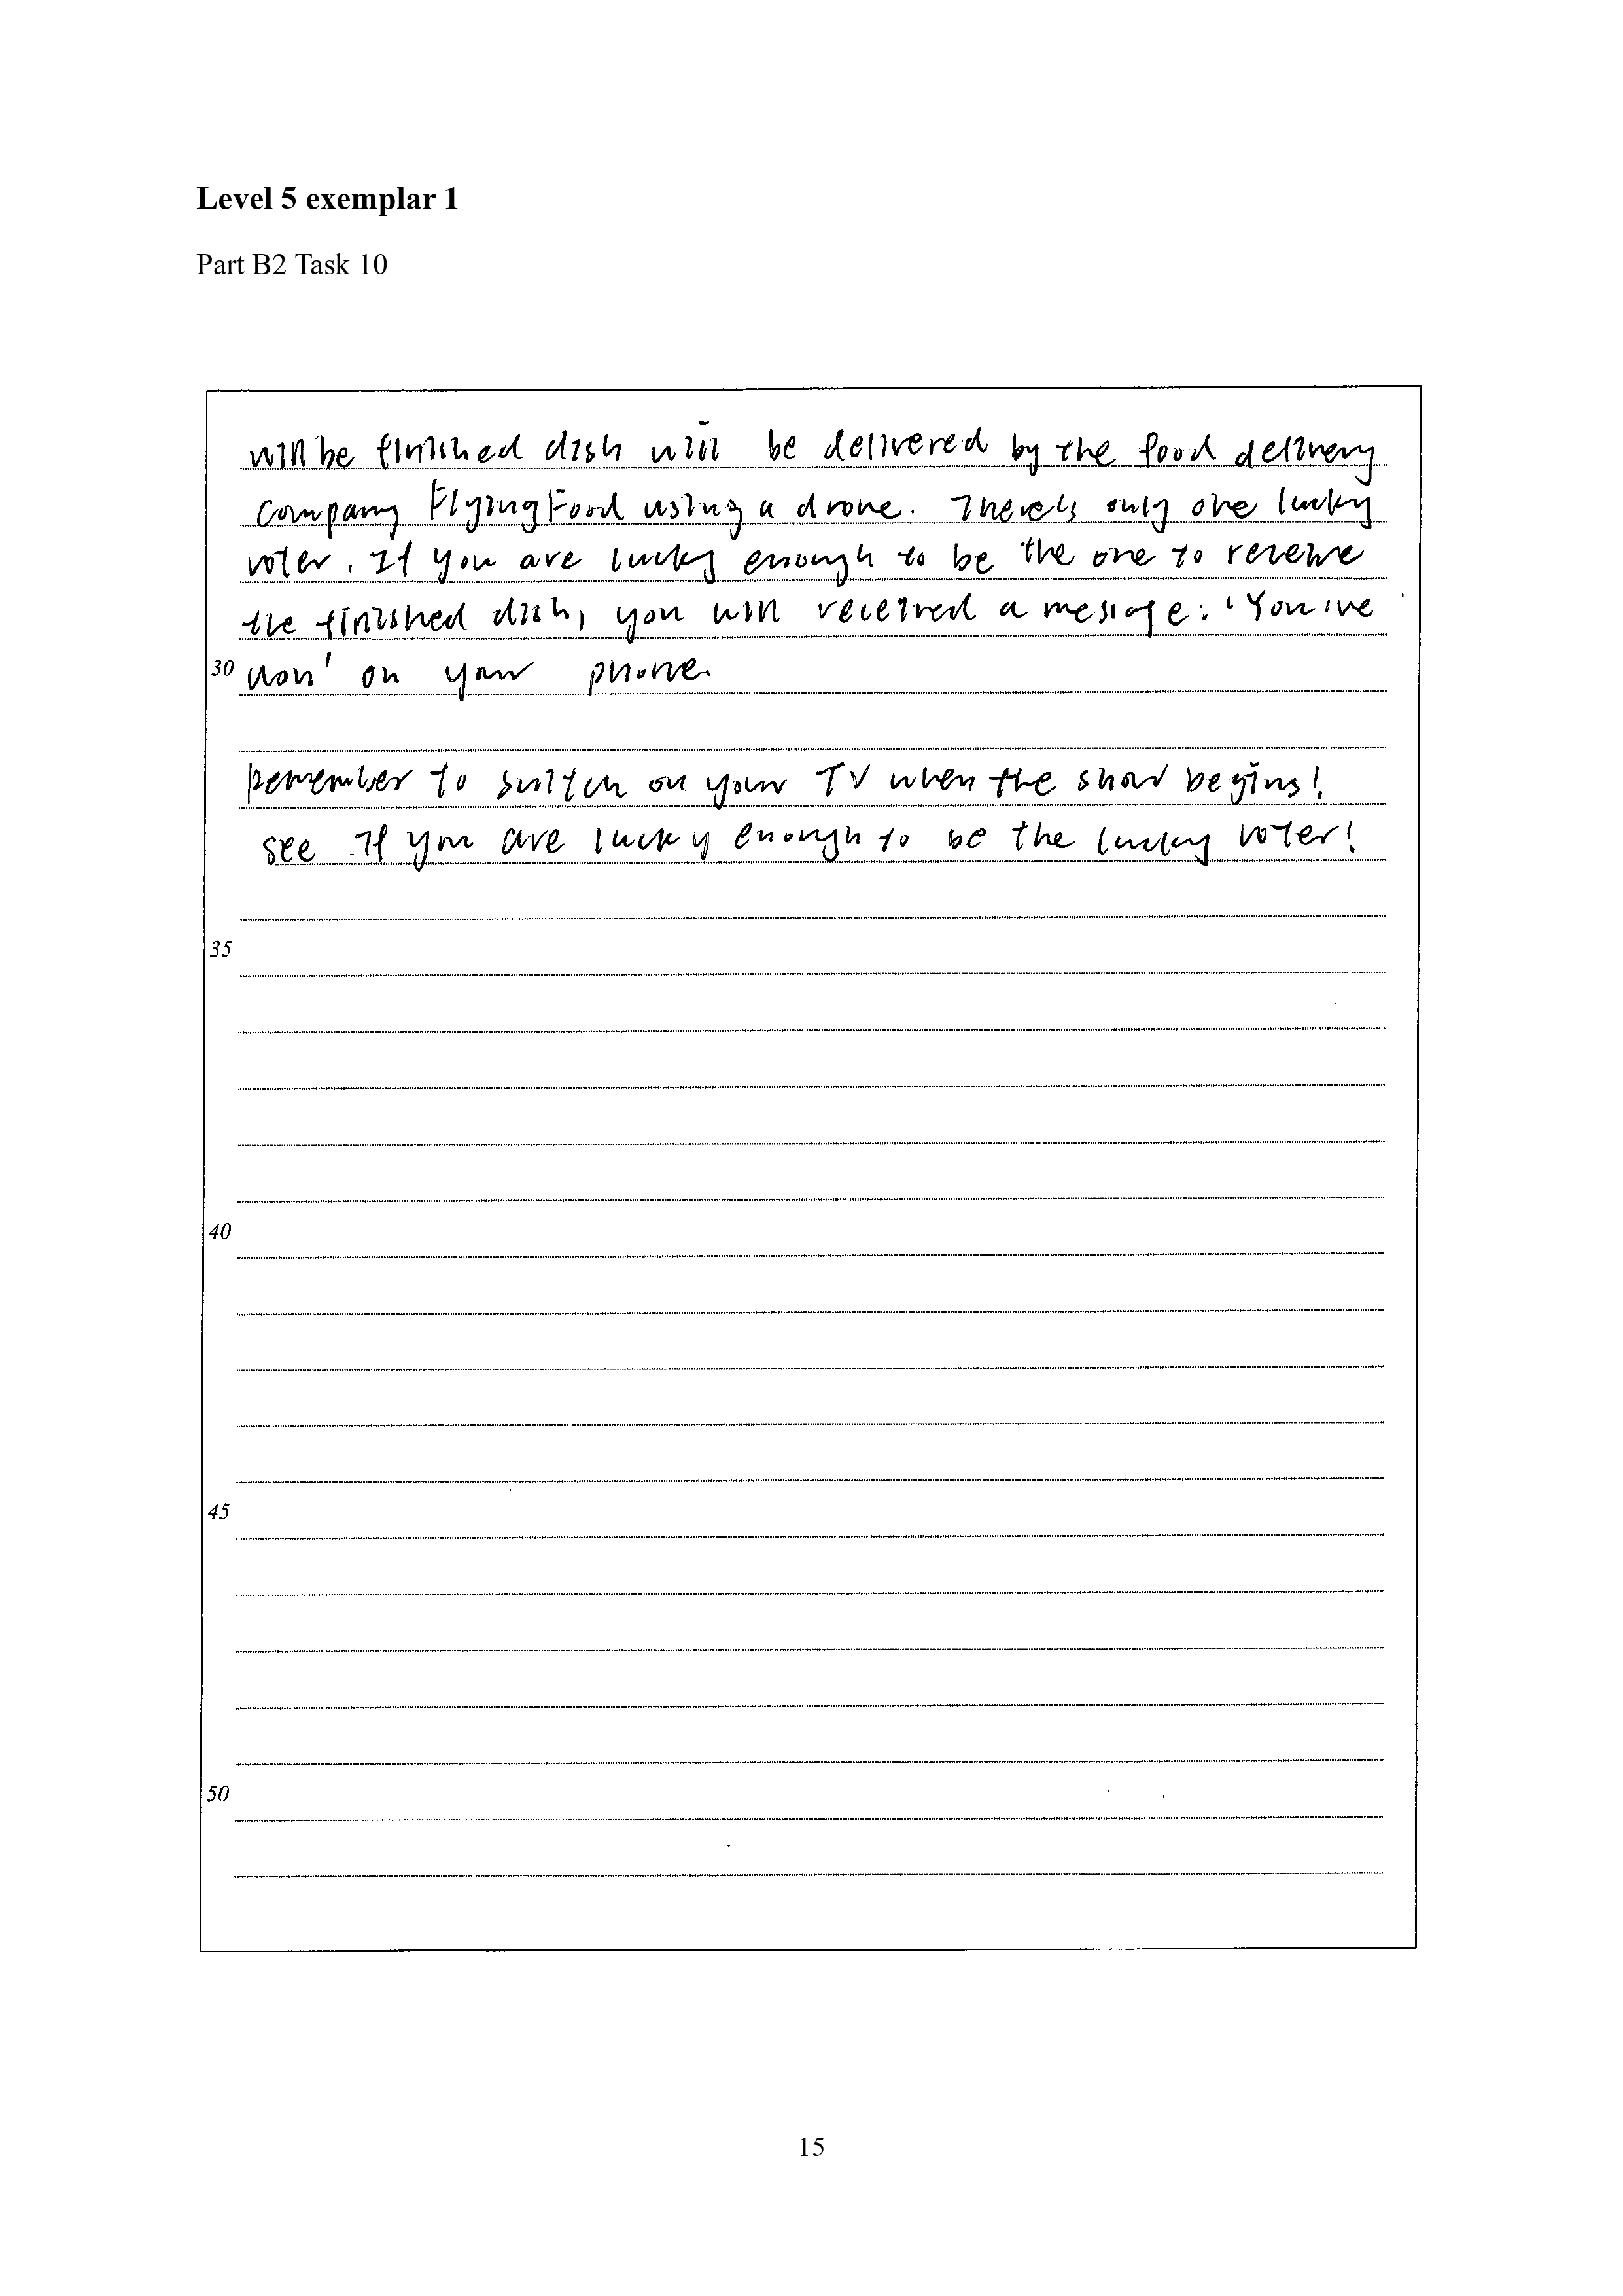 Level 5 exemplar 1
Part B2 Task 10
will be finished dish will be delivered by the food delivery
company FlyingFood using a drone. There's only one lucky
voter. If you are lucky enough to be the one to receive
the finished dish, you will received a message: 'You've
30 won' on your phone.
Remember to switch on your TV when the show begins!
see if you are lucky enough to be the lucky voter!
35
40
45
50
15